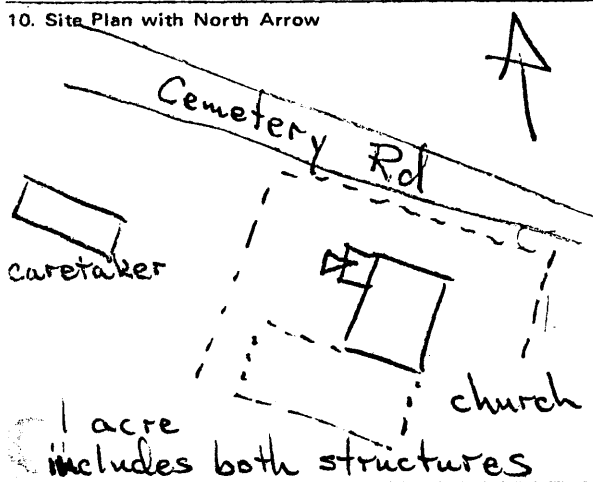 10. Site Plan with North Arrow
Cemetery Rd
caretaker
church
1 acre
includes both structures